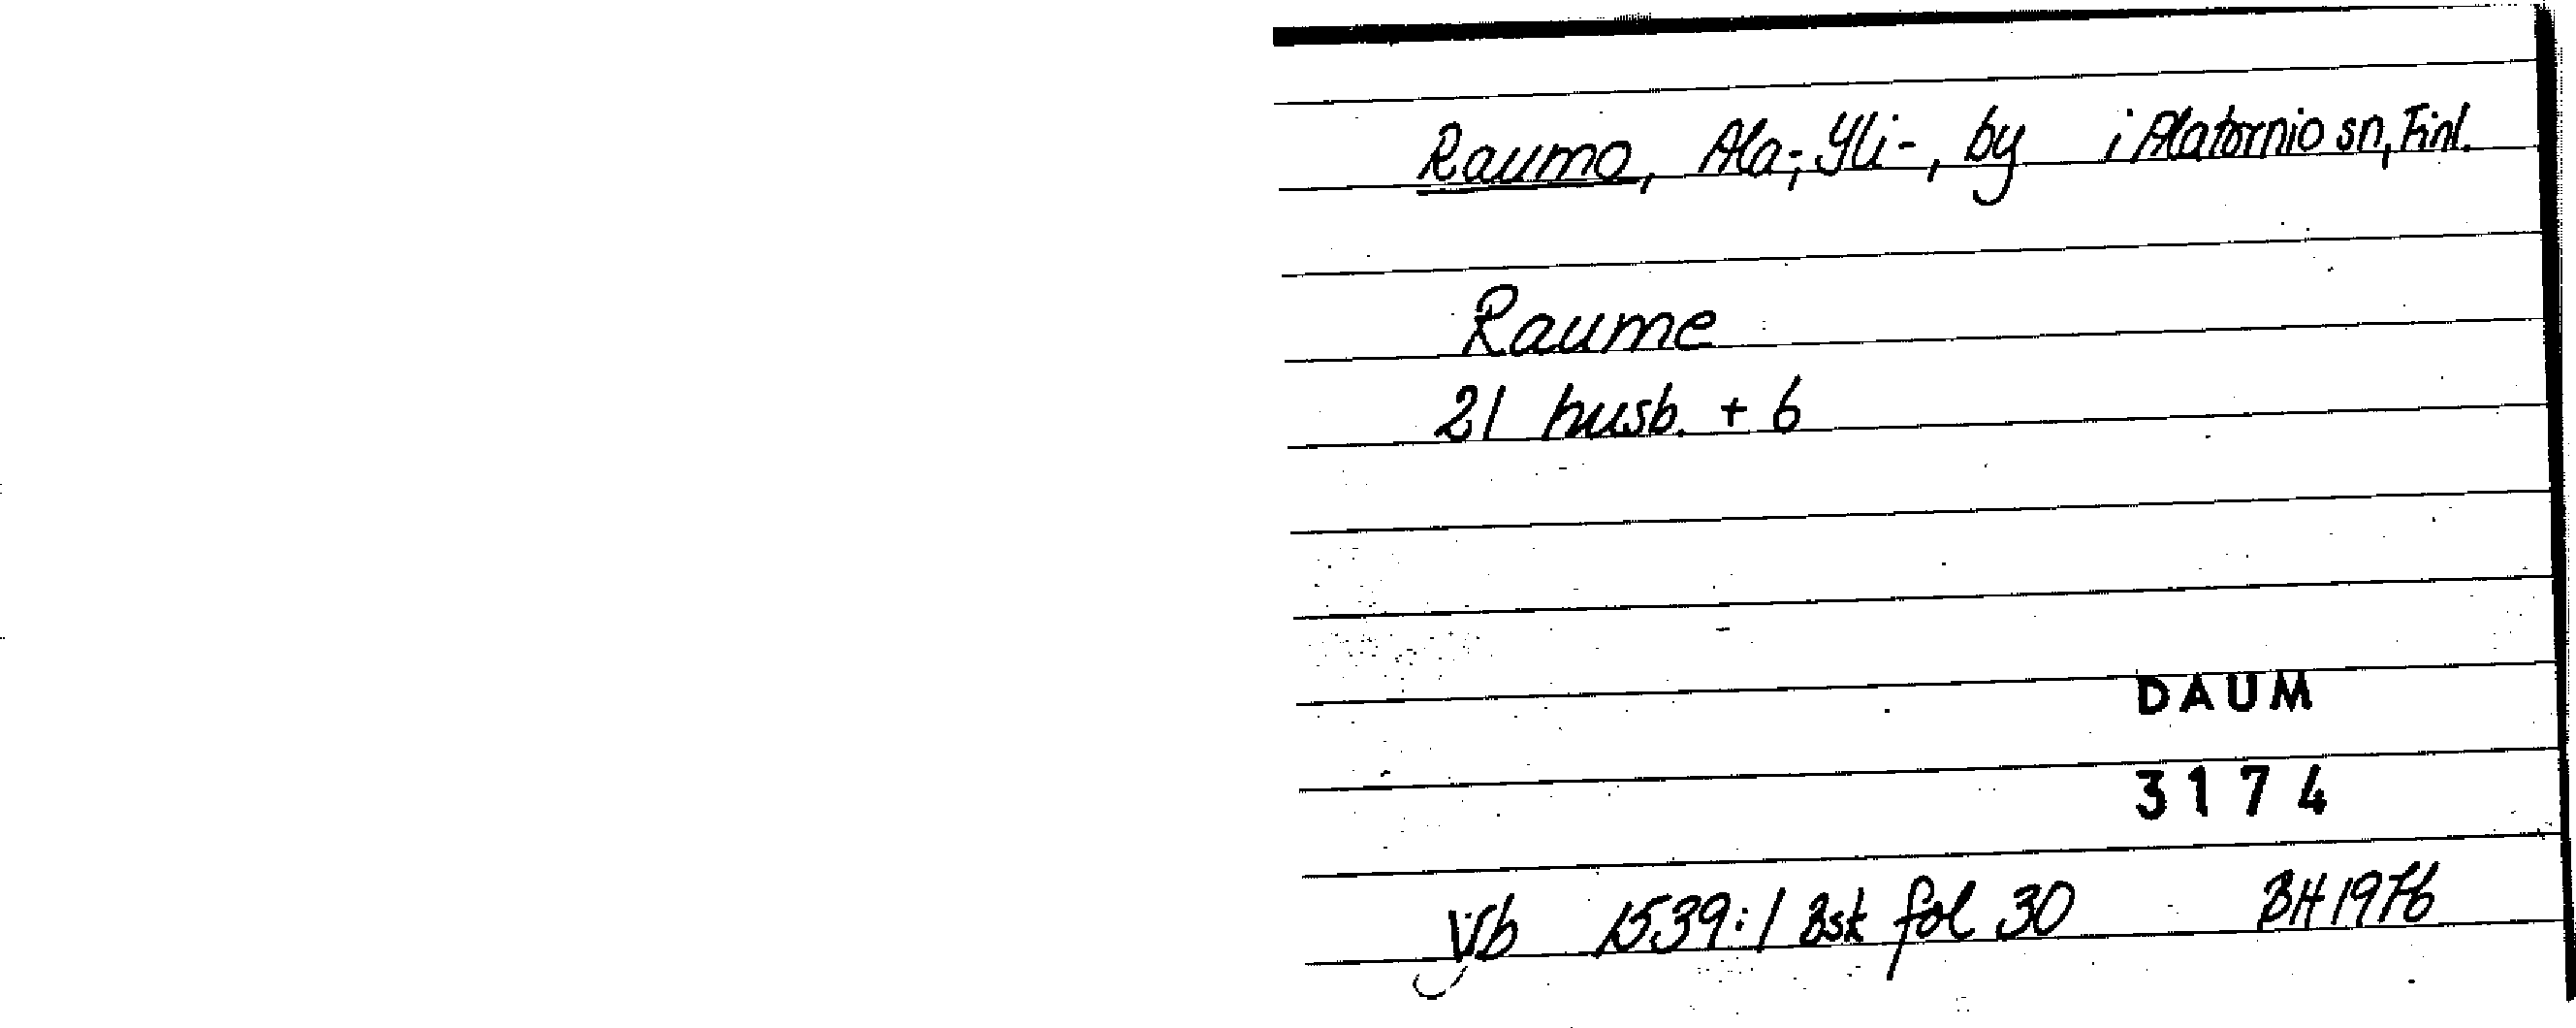 Raumo, Ala-, Yli-, by i Alatornio sn, Finl.
Raume
21 husb. + 6
DAUM
3174
Vjb 1539:1 Bsk fol 30 BH 1976